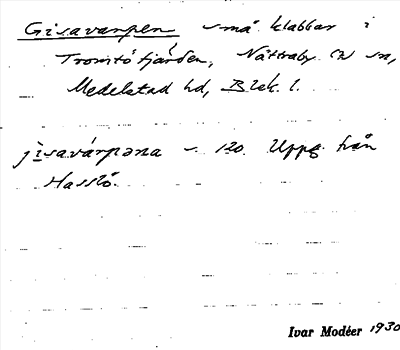 Gisavarpen små klabbar i
Tromtö fjärden, Nättraby sn,
Medelstad hd, Blek. l.
jisavárpəna - 120. Uppg. från
Hasslö.
Ivar Modéer 1930